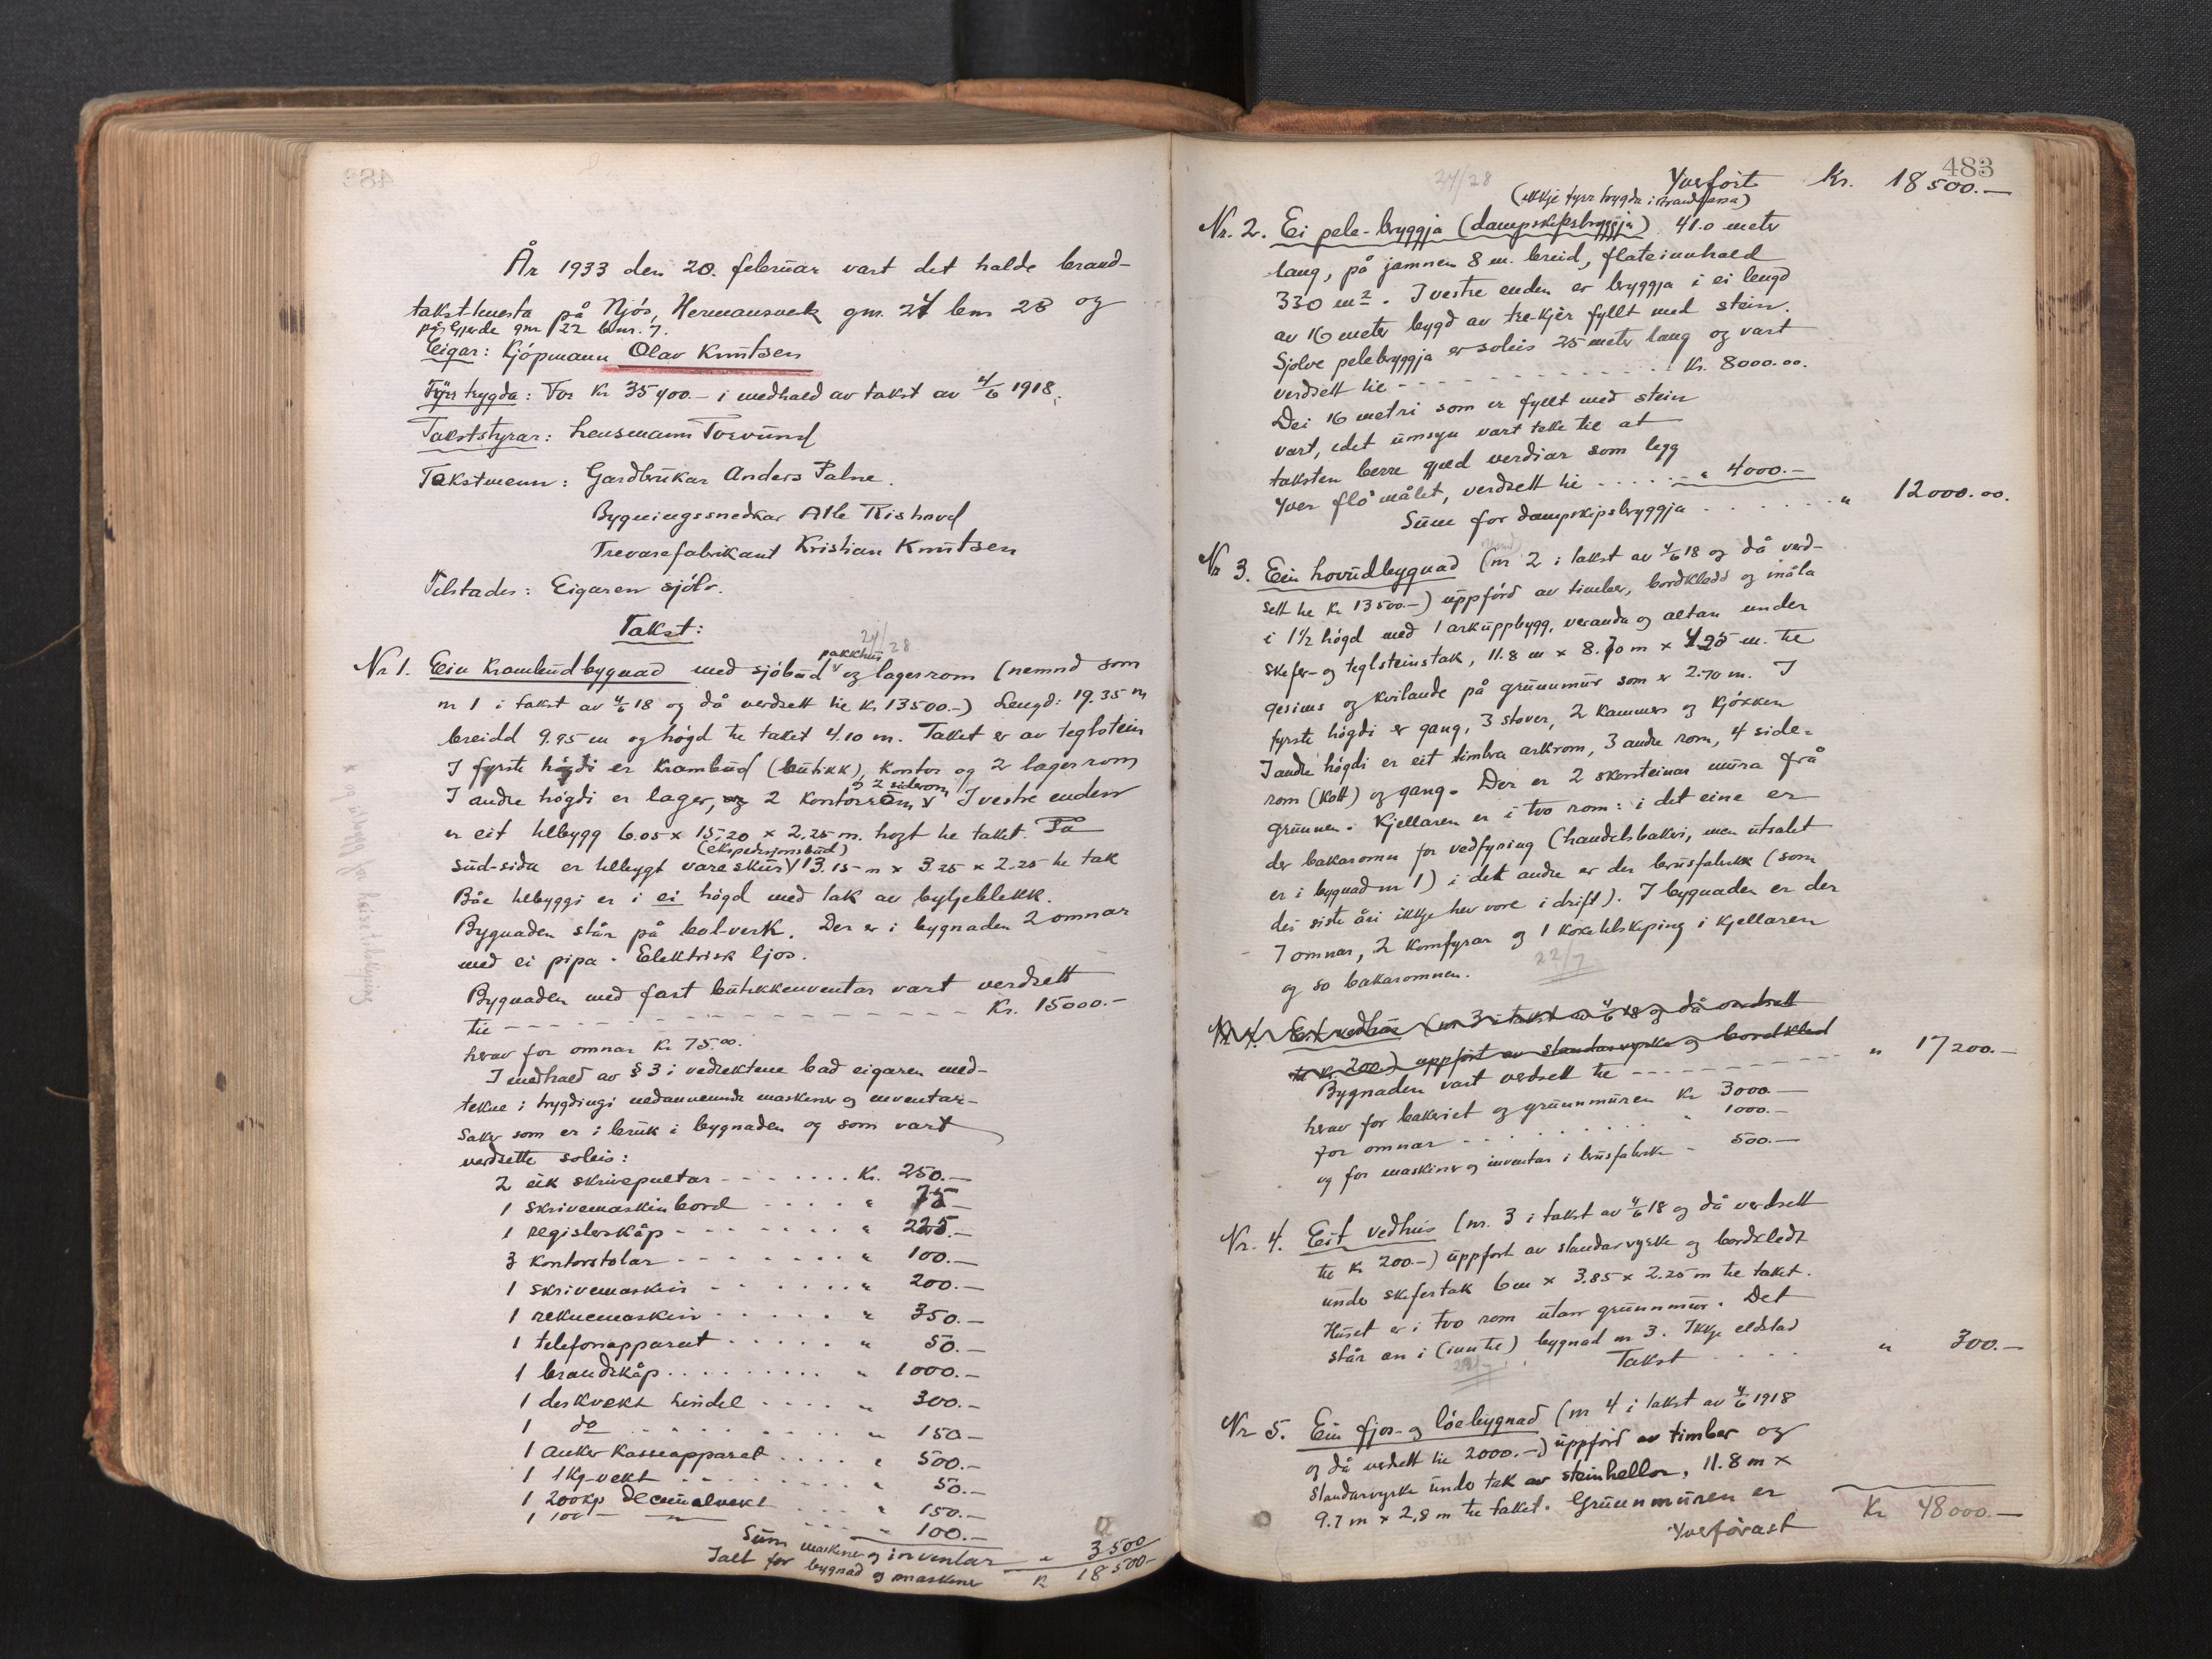 År 1933 den 20. februar vart det halde brand-
takst-henta på Njøs, Hermansverk gnr. 24 bnr 28 og
på Gjerde gnr 22 bnr. 7.
Eigar: Kjøpmann Olav Knutsen
Fyrr trygda: For kr 35400.— i medhald av takst av 4/6 1918.
Takststyrar: Lensmann Torvund
Takstmenn: Gardbrukar Anders Talne.
Bygningssnedkar Atle Rishovd
Trevarefabrikant Kristian Knutsen
Tilstades: Eigaren sjølv.
Takst:
24/28
pakkhus
Nr 1. Ein Krambudbygnad med sjøbud og lagerrom (nemnd som
nr 1 i takst av 4/6 18 og då verdsett til kr 13500.—) Lengd: 19.35 m
breidd 9.95 m og høgd til taket 4.10 m. Taket er av teglstein
I fyrste høgdi er Krambud (butikk), kontor og 2 lagerrom
og 2 siderom
I andre høgdi er lager, og 2 Kontorrom. I vestre enden
er eit tilbygg 6.05 x 15,20 x 2.25 m. høgt til taket. På
(ekspedisjonsbud)
sud-sida er tilbygt vareskur 13.15 m x 3.25 x 2.25 til tak
Båe tilbyggi er i ei høgd med tak av bylgjeblekk.
Bygnaden står på bol-verk. Der er i bygnaden 2 omnar
med ei pipa. Elektrisk ljos.
Bygnaden med fast butikkinventar vart verdsett
til - - - - - - - - Kr. 15000.—
herav for omnar Kr 75.00.
I medhald av § 3 i vedtektene bad eigaren med-
tekne i trygdingi nedannemnde maskiner og inventar-
saker som er i bruk i bygnaden og som vart
verdsette soleis:
2 eik skrivepultar - - - - Kr. 250.—
1 skrivemaskinbord - - - - " 75.—
1 registerskåp - - - - " 225.—
3 kontorstolar - - - - " 100.—
1 skrivemaskin - - - - " 200.—
1 reknemaskin - - - - " 350.—
1 telefonapparat - - - - " 50.—
1 brandskåp - - - - " 1000.—
1 diskvekt hindel - - - - " 300.—
1 do - - - - " 150.—
1 Anker Kasseapparat - - - - " 500.—
1 1 kg-vekt - - - - " 50.—
1 200 kg decimalvekt - - - - " 150.—
1 100 — " — - - - - " 100.—
Sum maskiner og inventar " 3500
Ialt for bygnad og maskiner kr 18500.—
483
24/28
Yverført Kr. 18500.—
(ikkje fyrr trygda i Brandkassa)
Nr. 2. Ei pele-bryggja (dampskipsbryggja). 41.0 meter
lang, på jamnen 8 m. breid, flateinnhald
330 m². I vestre enden er bryggja i ei lengd
av 16 meter bygd av tre-kjer fyllt med stein.
Sjolve pelebryggja er soleis 25 meter lang og vart
verdsett til - - - - - Kr. 8000.00.
Dei 16 metri som er fyllt med stein
vart, idet umsyn vart teke til at
taksten berre gjeld verdiar som legg
yver flomålet, verdsett til - - - " 4000.—
Sum for dampskipsbryggja - - - - " 12000.00.
Nr 3. Ein hovudbygnad (nr 2 i takst av 4/6 18 og då verd-
sett til kr 13500.—) uppførd av timber, bordkledd og måla
i 1½ høgd med 1 arkuppbygg, veranda og altan under
skifer- og teglsteinstak, 11.8 m x 8.70 m x 4.25 m. til
gesims og kvilande på grunnmur som er 2.70 m. I
fyrste høgdi er gang, 3 stover, 2 kammers og kjøkken
I andre høgdi er eit timbra arkrom, 3 andre rom, 4 side-
rom (kott) og gang. Der er 2 skorsteinar mura frå
grunnen. Kjellaren er i tvo rom: i det eine er
der bakaromn for vedfyring (handelsbakeri, men utsalet
er i bygnad nr 1) i det andre er der brusfabrikk (som
dei siste åri ikkje hev vore i drift). I bygnaden er der
7 omnar, 2 komfyrar og 1 koketilskiping i kjellaren
og so bakaromnen.
22/7
Nr 4. Eit vedhus (nr 3 i takst av 4/6 18 og då verdsett
til kr. 200) uppført av standarverke og bordkledd
Bygnaden vart verdsett til - - - - " 17200.—
herav for bakeriet og grunnmuren kr 3000.—
for omnar - - - - " 1000.—
og for maskiner og inventar i brusfabrikk - 500.—
Nr. 4. Eit vedhus (nr. 3 i takst av 4/6 18 og då verdsett
til kr 200.—) uppført av standarverke og bordkledt
under skifertak 6 m x 3.85 x 2.25 m til taket.
Huset er i tvo rom utan grunnmur. Det
står an i (inn til) bygnad nr 3. Ikkje eldstad
Takst - - - - " 300.—
Nr 5. Ein fjos- og løebygnad (nr 4 i takst av 4/6 1918
og då verdsett til 2000.—) uppførd av timber og
standarverke under tak av steinhellor, 11.8 m x
9.7 m x 2,8 m til taket. Grunnmuren er
Yverførast Kr 48000.—